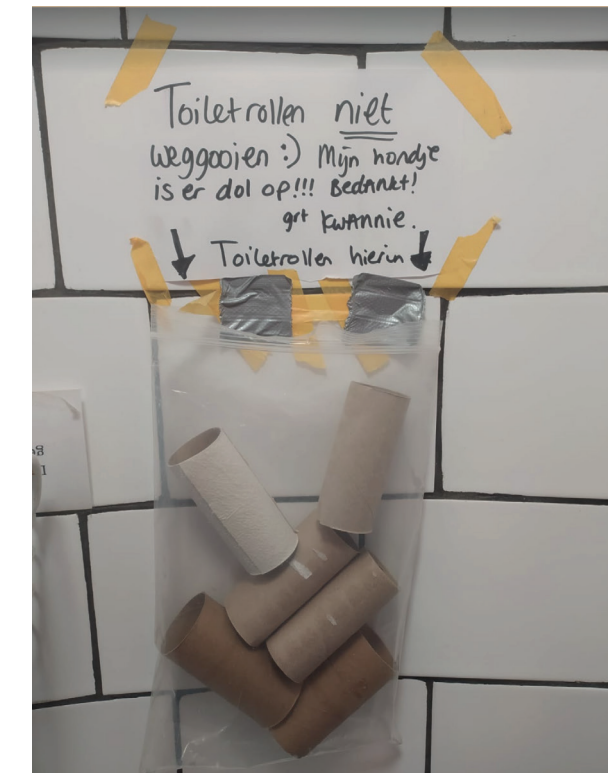 Toiletrollen niet
weggooien :) Mijn hondje
is er dol op!!! Bedankt!
grt kwannie.
Toiletrollen hierin